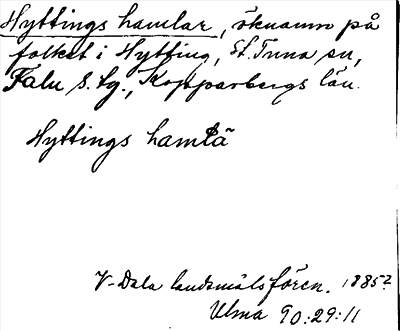 Hyttings hamlar, öknamn på
folket i Hytting, St. Tuna sn,
Falu s. tg., Kopparbergs län.
Hyttings hamlä
V-Dala landsmålsfören. 1885?
Ulma 90:29:11